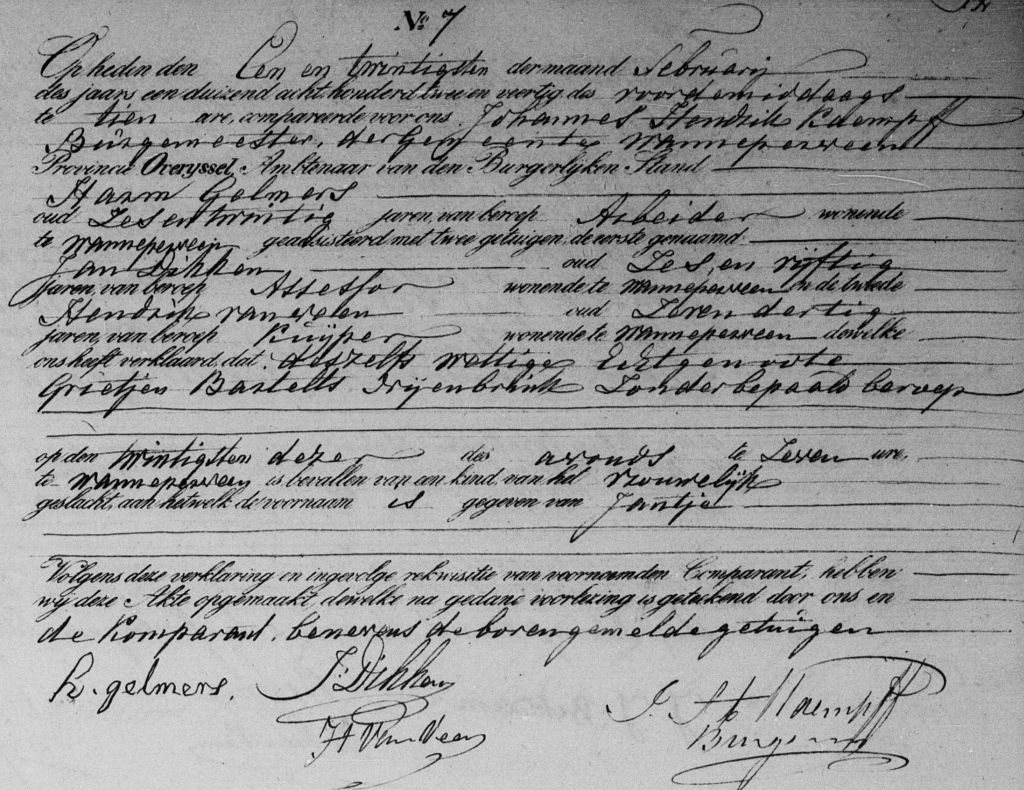 No. 7
Op heden den Een en twintigsten der maand Februarij
des jaars een duizend acht honderd twee en veertig, des voordemiddaags
te tien ure, compareerde voor ons Johannes Hendrik Kaempff
Burgemeester, der Gemeente Wanneperveen
Provincie Overyssel, Ambtenaar van den Burgerlijken Stand
Harm Gelmers
oud Zesentwintig jaren, van beroep Arbeider wonende
te Wanneperveen geadsisteerd met twee getuigen, de eerste genaamd
Jan Dikken oud Zes en vijftig
jaren, van beroep Assessor wonende te Wanneperveen en de tweede
Hendrik van veen oud Zeven dertig
jaren, van beroep Kuijper wonende te Wanneperveen dewelke
ons heeft verklaard, dat deszelfs wettige Echtgenoote
Grietjen Bartelts Drijenbrink Zonder bepaald beroep
op den twintigsten dezer des avonds te Zeven ure,
te Wanneperveen is bevallen van een kind, van het vrouwelijk
geslacht, aan hetwelk de voornaam is gegeven van Jantje
Volgens deze verklaring en ingevolge rekwisitie van voornoemden Comparant, hebben
wij deze Akte opgemaakt, dewelke na gedane voorlezing is geteekend door ons en
de Komparant, benevens de bovengemelde getuigen
h. gelmers. J: Dikken
J. H Kaempff
H Van Veen
Burgem